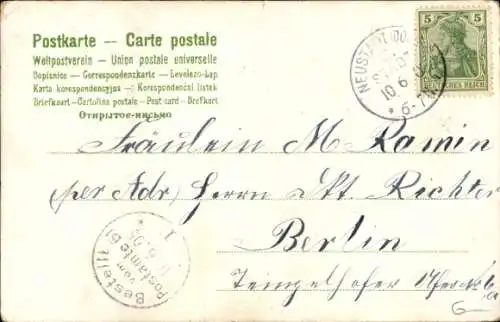 Postkarte — Carte postale
Weltpostverein — Union postale universelle
Dopisnice — Correspondenzkarte — Levelezo-Lap
Karta korespondencyjna — Korespondenční listek
Briefkaart — Cartolina postale — Post card — Brefkort
Открытое письмо
5 5
DEUTSCHES REICH
NEUSTADT
10.6.
* 6-7
Fräulein M Ramin
(per Adr) Herrn Richter
Berlin
Tempelhofer
Bestellt
vom
Postamte
6.05